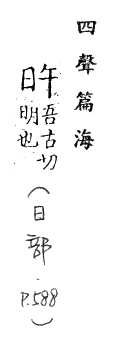 四聲篇海
旿吾古切明也(日部 P.588)